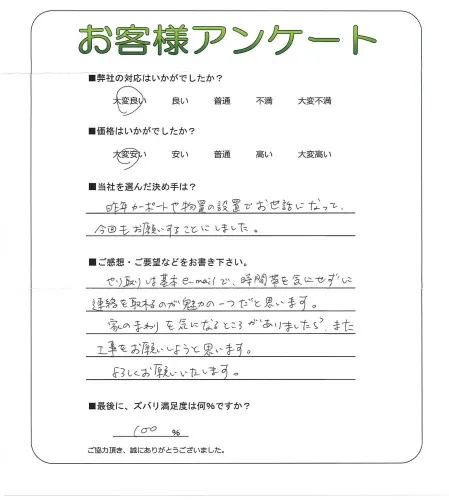 お客様アンケート
■弊社の対応はいかがでしたか？
大変良い 良い 普通 不満 大変不満
■価格はいかがでしたか？
大変安い 安い 普通 高い 大変高い
■当社を選んだ決め手は？
昨年カーポートや物置の設置でお世話になって、
今回もお願いすることにしました。
■ご感想・ご要望などをお書き下さい。
やり取りは基本e-mailで、時間帯を気にせずに
連絡を取れるのが魅力の一つだと思います。
家のまわりを気になるところがありましたら、また
工事をお願いしようと思います。
よろしくお願いいたします。
■最後に、ズバリ満足度は何％ですか？
100 ％
ご協力頂き、誠にありがとうございました。